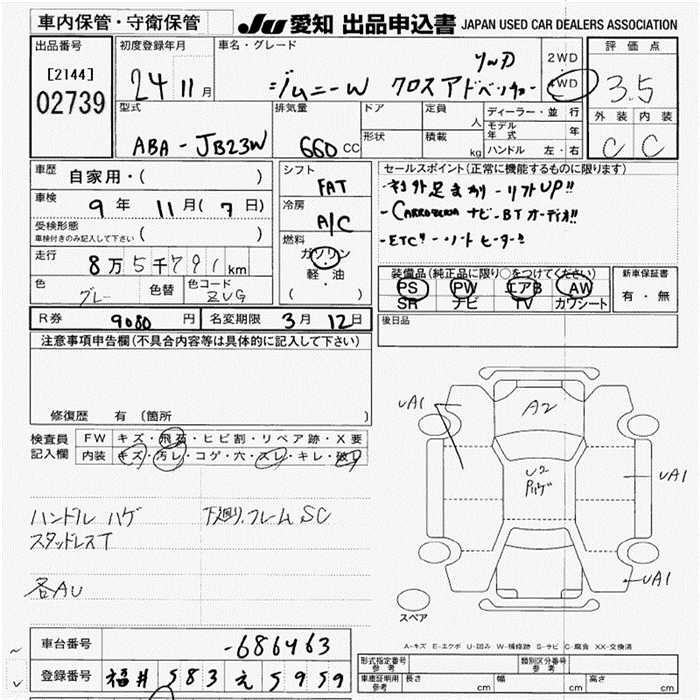 車内保管・守衛保管
JU 愛知 出品申込書 JAPAN USED CAR DEALERS ASSOCIATION
出品番号 [2144] 02739
初度登録年月 24 11月
車名・グレード ジムニーW クロスアドベンチャー
2WD 4WD
評価点 3.5
型式 ABA-JB23W
排気量 660 CC
ドア 形状
定員 人
積載 kg
ディーラー・並行
モデル年式 年
ハンドル 左・右
外装 内装
C C
車歴 自家用・( )
車検 9年 11月(7日)
受検形態 ( )
車検付きのみ記入して下さい
走行 8万5千791km
色 グレー 色替 色コード ZUG
シフト FAT
冷房 A/C
燃料 ガソリン 軽・油 ( )
セールスポイント(正常に機能するものに限ります)
・CARROZZERIA ナビ・BTオーディオ!!
・ETC!! ・シートヒーター!!
装備品(純正品に限り○をつけてください)
PS PW エアB AW
SR ナビ TV カワシート
新車保証書 有・無
R券 9080円 名変期限 3月12日
後日品
注意事項申告欄(不具合内容等は具体的に記入して下さい)
修復歴 有(箇所 )
検査員記入欄 FW キズ・飛石・ヒビ割・リペア跡・X要
内装 キズ・汚レ・コゲ・穴・スレ・キレ・破レ
ハンドル ハゲ 下廻り.フレームSC
スタッドレスT
各AU
A2
UA1
U2
UA1
UA1
スペア
A-キズ E-エクボ U-凹み W-補修跡 S-サビ C-腐食 XX-交換済
車台番号 -686463
登録番号 福井 583 え 5959
形式指定番号 参考 類別区分番号 参考
車庫証明用 参考 長さ cm 幅 cm 高さ cm